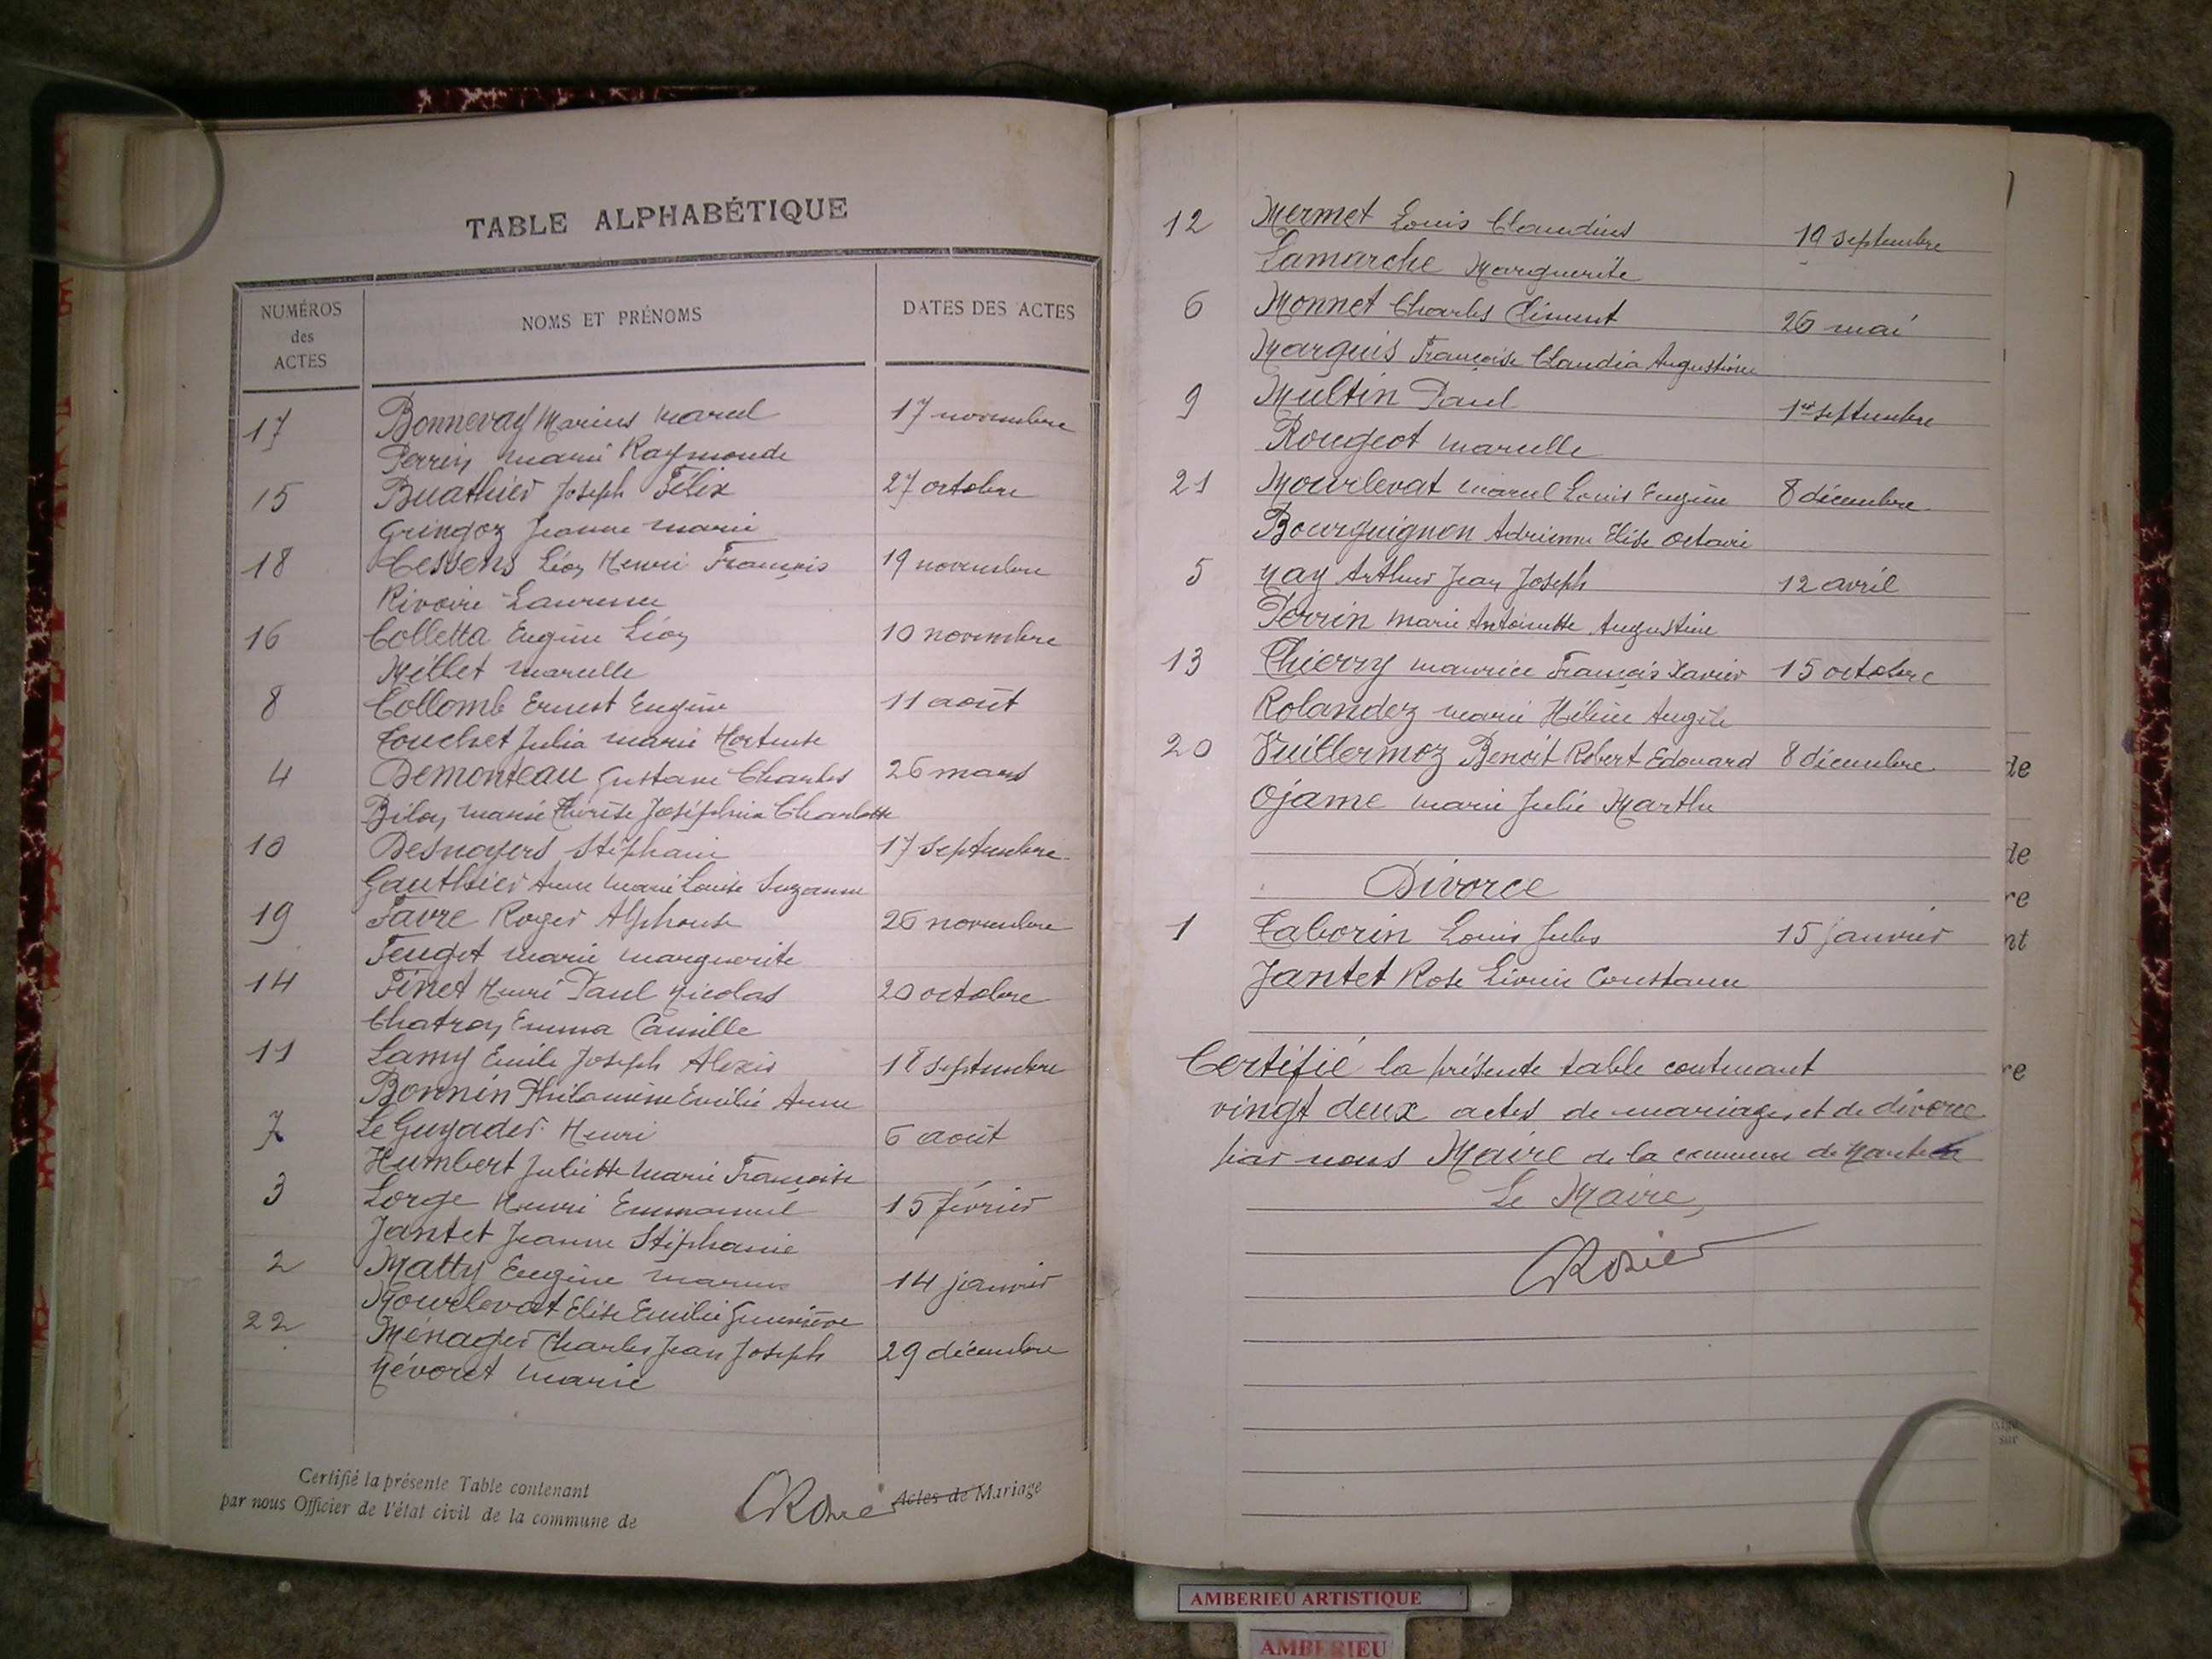 TABLE ALPHABÉTIQUE
NUMÉROS
des
ACTES
NOMS ET PRÉNOMS
DATES DES ACTES
17 Bonnevay Marius Marcel 17 novembre
Perrin Marie Raymonde
15 Buathier Joseph Félix 27 octobre
Gringoz Jeanne Marie
18 Cessens Léon Henri François 19 novembre
Rivoire Laurence
16 Colletta Eugène Léon 10 novembre
Millet Marcelle
8 Collomb Ernest Eugène 11 août
Touchet Julia Marie Hortense
4 Demonteau Gustave Charles 26 mars
Bilon Marie Thérèse Joséphine Charlotte
10 Desnoyers Stéphane 17 septembre
Gauthier Anne Marie Louise Suzanne
19 Favre Roger Alphonse 26 novembre
Feuget Marie Marguerite
14 Finet Henri Paul Nicolas 20 octobre
Chatron Emma Camille
11 Lamy Emile Joseph Alexis 18 septembre
Bonnin Philomène Emilie Anne
7 Le Guyader Henri 6 août
Humbert Juliette Marie Françoise
3 Lorge Henri Emmanuel 15 février
Jantet Jeanne Stéphanie
2 Matty Eugène Marius 14 janvier
Mourlevat Elise Emilie Geneviève
22 Ménager Charles Jean Joseph 29 décembre
Névoret Marie
Certifié la présente Table contenant
Actes de Mariage
par nous Officier de l'état civil de la commune de
CRosier
12 Mermet Louis Claudius 19 septembre
Lamarche Marguerite
6 Monnet Charles Clément 26 mai
Marquis Françoise Claudia Augustine
9 Multin Paul 1er septembre
Rougeot Marcelle
21 Mourlevat Marcel Louis Eugène 8 décembre
Bourguignon Adrienne Elise Octavie
5 Nay Arthur Jean Joseph 12 avril
Perrin Marie Antoinette Augustine
13 Thierry Maurice François Xavier 15 octobre
Rolandez Marie Hélène Angèle
20 Vuillermoz Benoit Robert Edouard 8 décembre
Ojame Marie Julie Marthe
Divorce
1 Taborin Louis Jules 15 janvier
Jantet Rose Léonie Constance
Certifié la présente table contenant
vingt deux actes de mariages et de divorce
par nous Maire de la commune de Nantua
Le Maire,
CRosier
de
de
re
nt
re
sur
AMBERIEU ARTISTIQUE
AMBERIEU